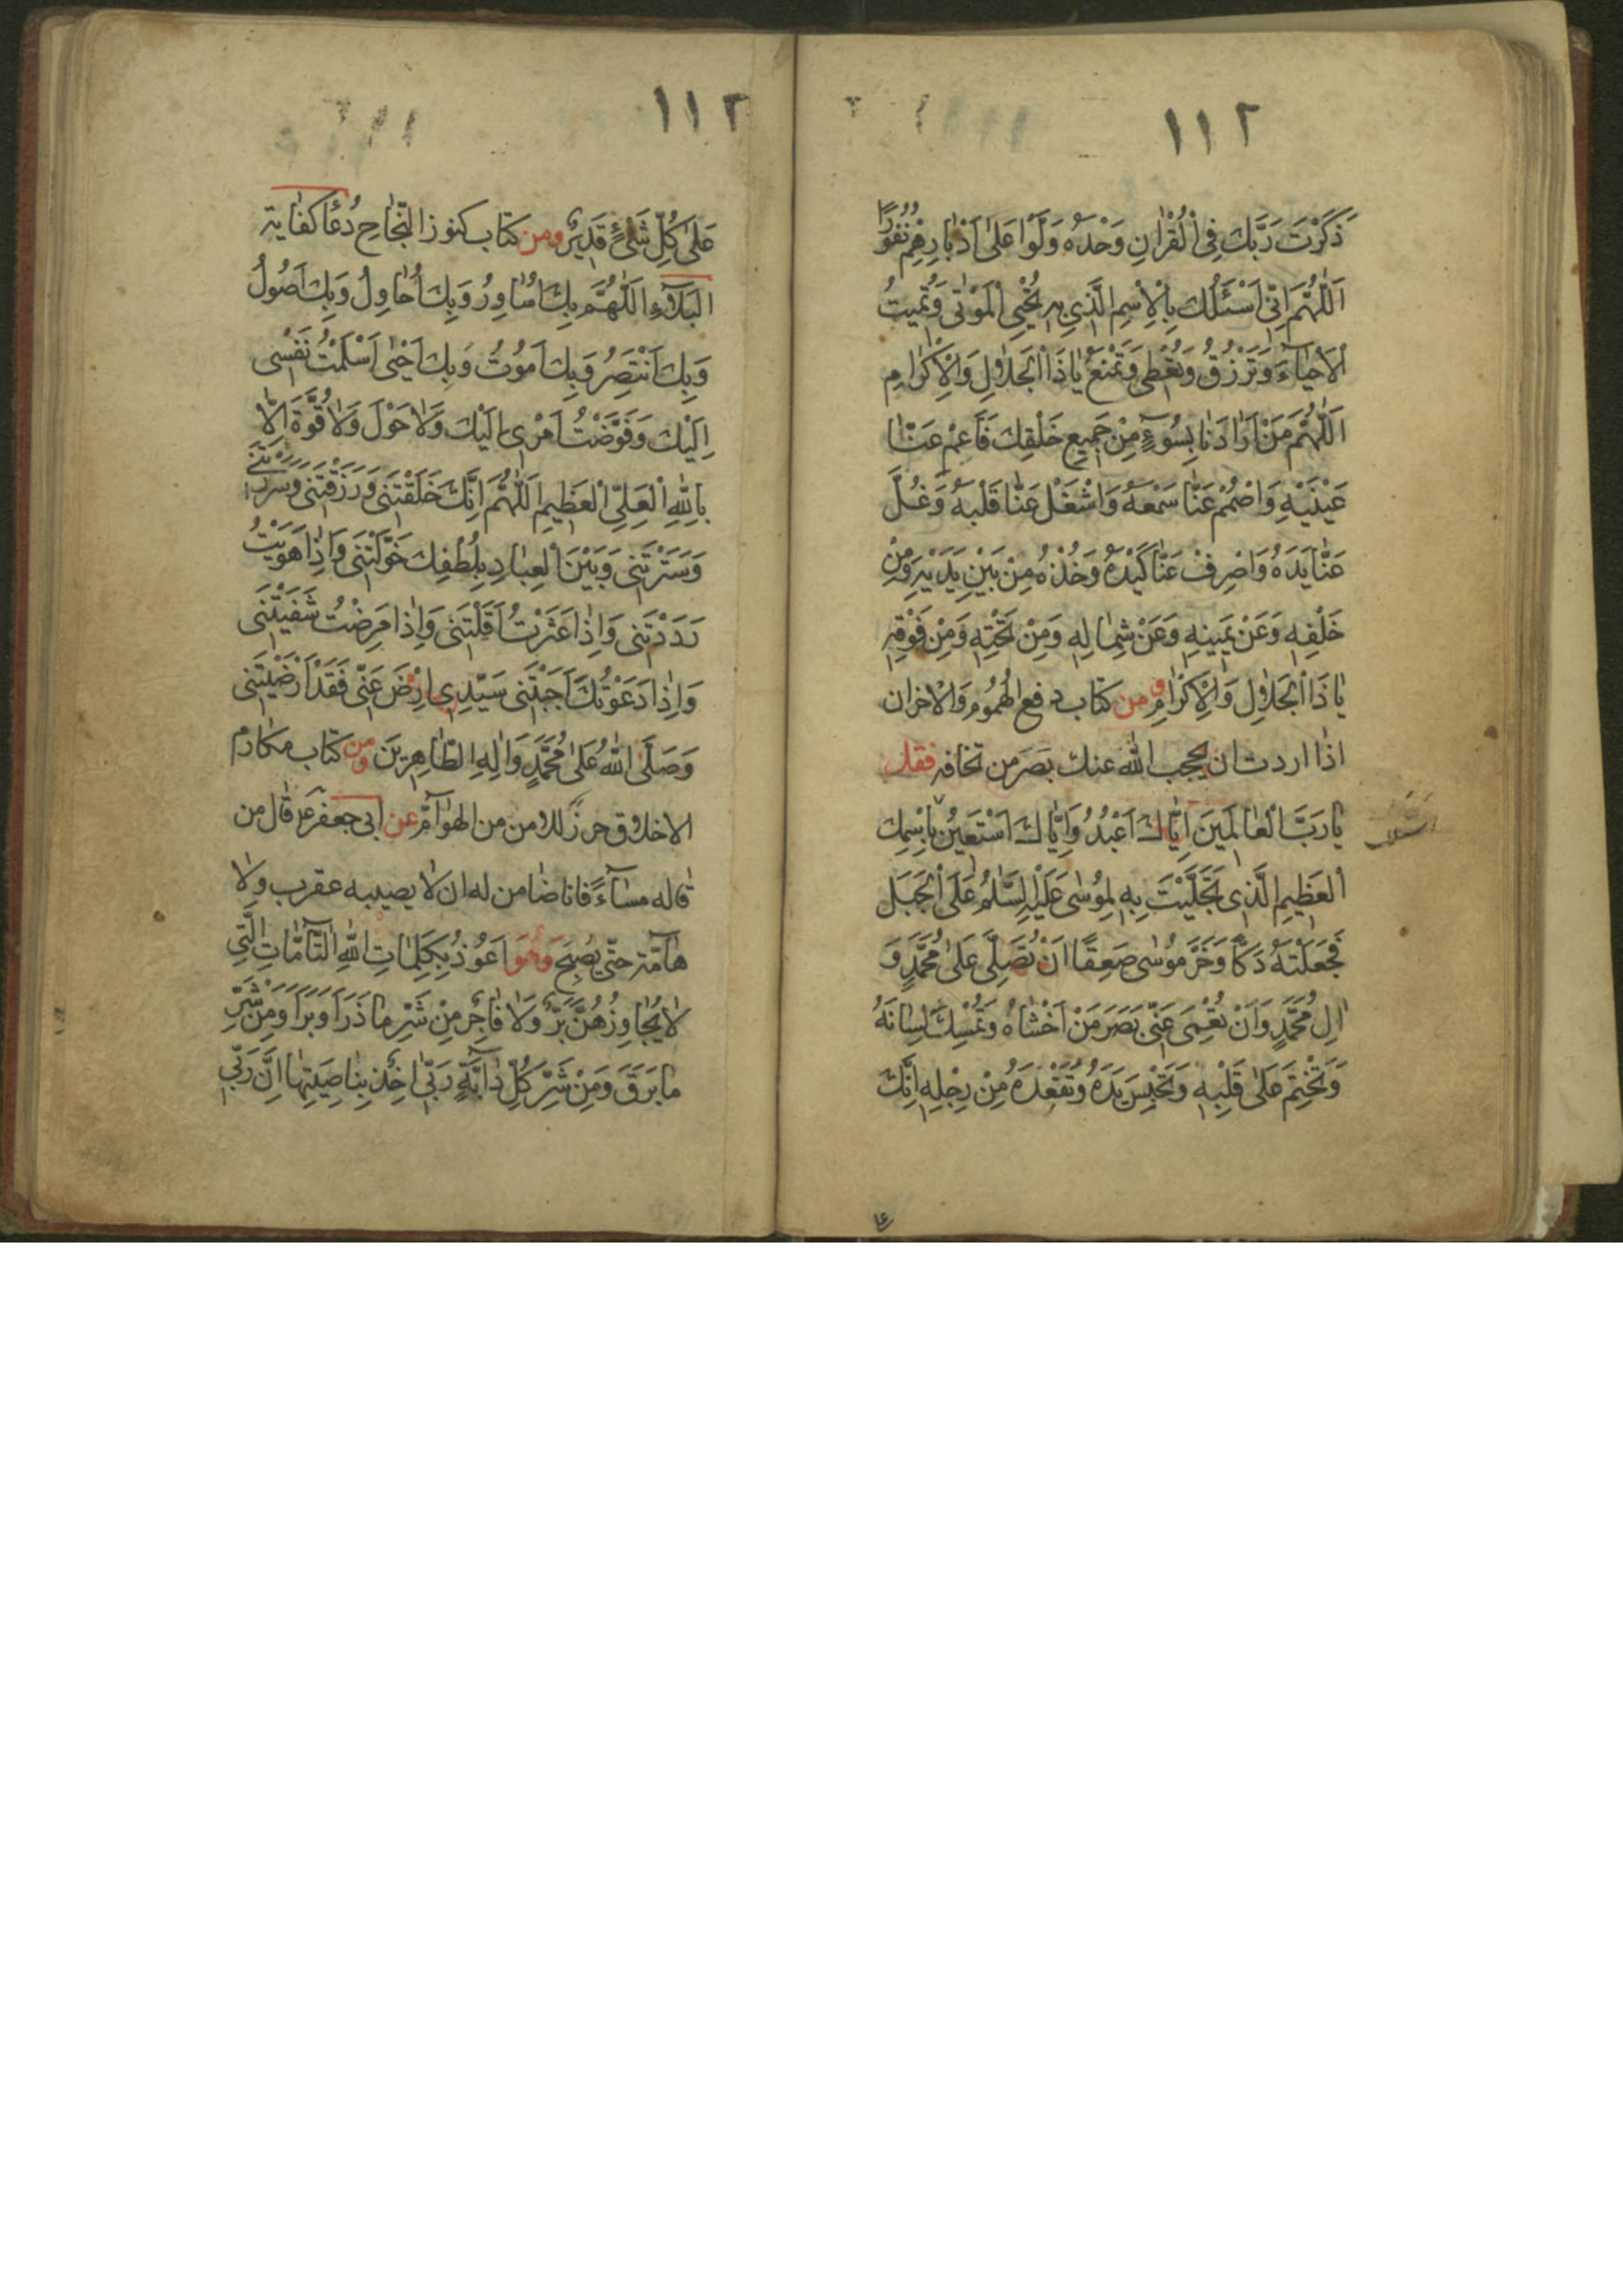 ١١٢
ذَكَرْتَ رَبَّكَ فِي الْقُرْانِ وَحْدَهُ وَلَّوْا عَلٰى اَدْبٰارِهِمْ نُفُورًا
اَللّٰهُمَّ اِنّى اَسْئَلُكَ بِالْاِسْمِ الَّذِي بِهِ تُحْيِي الْمَوْتٰى وَتُمِيتُ
الْاَحْيٰاۤءَ وَتَرْزُقُ وَتُعْطِى وَتَمْنَعُ يٰا ذَا الْجَلٰالِ وَالْاِكْرٰامِ
اَللّٰهُمَّ مَنْ اَرٰادَنٰا بِسُوۤءٍ مِنْ جَمِيعِ خَلْقِكَ فَاَعْمِ عَنّٰا
عَيْنَيْهِ وَاصْمُمْ عَنّٰا سَمْعَهُ وَاشْغَلْ عَنّٰا قَلْبَهُ وَغُلَّ
عَنّٰا يَدَهُ وَاصْرِفْ عَنّٰا كَيْدَهُ وَخُذْهُ مِنْ بَيْنِ يَدَيْهِ وَمِنْ
خَلْفِهِ وَعَنْ يَمِينِهِ وَعَنْ شِمٰالِهِ وَمِنْ تَحْتِهِ وَمِنْ فَوْقِهِ
يٰا ذَا الْجَلٰالِ وَالْاِكْرٰامِ ومن كتاب دفع الهُمُومِ وَالاحزان
اذٰا اردت ان يحجب اللّٰه عنك بَصَرَ من تخافه فقل
يٰا رَبَّ الْعٰالَمِينَ اِيّٰاكَ اَعْبُدُ وَاِيّٰاكَ اَسْتَعِينُ بِاسْمِكَ
الْعَظِيمِ الَّذِى تَجَلَّيْتَ بِهِ لِمُوسٰى عَلَيْهِ السَّلٰمُ عَلَى الْجَبَلِ
فَجَعَلْتَهُ دَكًّا وَخَرَّ مُوسٰى صَعِقًا اَنْ تُصَلِّىَ عَلٰى مُحَمَّدٍ وَ
اٰلِ مُحَمَّدٍ وَاَنْ تُعْمِىَ عَنّى بَصَرَ مَنْ اَخْشٰاهُ وَتُمْسِكَ لِسٰانَهُ
وَتَخْتِمَ عَلٰى قَلْبِهِ وَتَحْبِسَ يَدَهُ وَتُقْعِدَهُ مِنْ رِجْلِهِ اِنَّكَ
١١٣
عَلٰى كُلِّ شَىْءٍ قَدِيرٌ ومن كتاب كنوز النّجٰاحِ دُعٰا كفٰاية
البَلٰاۤءِ اَللّٰهُمَّ بِكَ اُسٰاوِرُ وَبِكَ اُحٰاوِلُ وَبِكَ اَصُولُ
وَبِكَ اَنْتَصِرُ وَبِكَ اَمُوتُ وَبِكَ اَحْيٰى اَسْلَمْتُ نَفْسِى
اِلَيْكَ وَفَوَّضْتُ اَمْرِى اِلَيْكَ وَلٰا حَوْلَ وَلٰا قُوَّةَ اِلّٰا
بِاللّٰهِ الْعَلِىِّ الْعَظِيمِ اَللّٰهُمَّ اِنَّكَ خَلَقْتَنِى وَرَزَقْتَنِى وَسَرَرْتَنِى
وَسَتَرْتَنِى وَبَيْنَ الْعِبٰادِ بِلُطْفِكَ خَوَّلْتَنِى وَاِذٰا هَوَيْتُ
رَدَدْتَنِى وَاِذٰا عَثَرْتُ اَقَلْتَنِى وَاِذٰا مَرِضْتُ شَفَيْتَنِى
وَاِذٰا دَعَوْتُكَ اَجَبْتَنِى سَيِّدِى اِرْضَ عَنّى فَقَدْ اَرْضَيْتَنِى
وَصَلَّى اللّٰهُ عَلٰى مُحَمَّدٍ وَاٰلِهِ الطّٰاهِرِينَ ومن كتاب مكارم
الاخلاق حرز للامن من الهوٰآمّ عن ابى جعفر ع قٰال من
قاله مسٰاۤءً فانا ضٰامن له ان لا يصيبه عقرب ولا
هٰآمّة حتّى يُصْبِحَ وَهُوَ اَعُوذُ بِكَلِمٰاتِ اللّٰهِ التّٰآمّٰاتِ الَّتِي
لٰا يُجٰاوِزُهُنَّ بَرٌّ وَلٰا فٰاجِرٌ مِنْ شَرِّ مٰا ذَرَاَ وَبَرَاَ وَمِنْ شَرِّ
مٰا بَرَقَ وَمِنْ شَرِّ كُلِّ دٰآبَّةٍ رَبّى اٰخِذٌ بِنٰاصِيَتِهٰا اِنَّ رَبّى